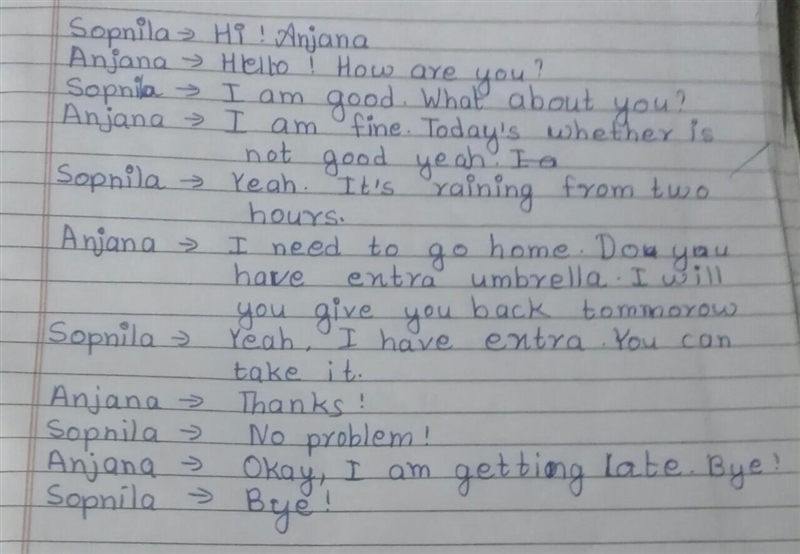 Sopnila → Hi! Anjana
Anjana → Hello! How are you?
Sopnila → I am good. What about you?
Anjana → I am fine. Today's whether is
not good yeah. I a
Sopnila → Yeah. It's raining from two
hours.
Anjana → I need to go home. Dou you
have entra umbrella. I will
you give you back tommorow
Sopnila → Yeah, I have entra. You can
take it.
Anjana → Thanks!
Sopnila → No problem!
Anjana → Okay, I am getting late. Bye!
Sopnila → Bye!